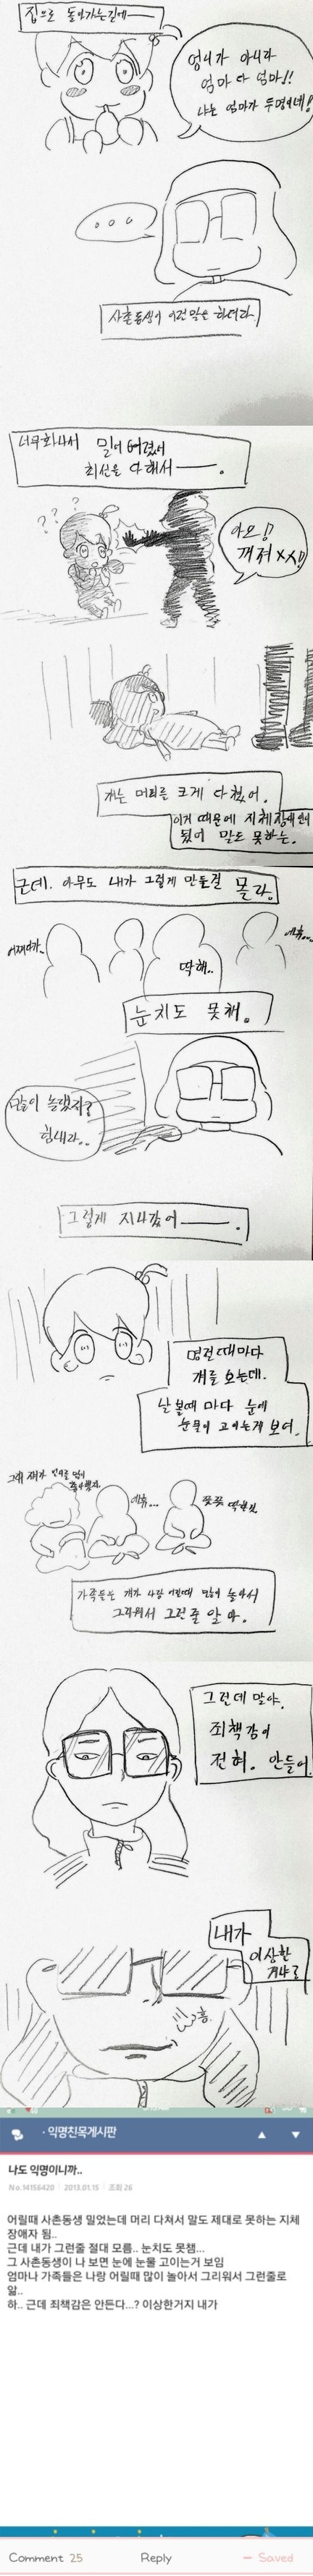 집으로 돌아가는길에──
엉니가 아니라
엄마 다 엄마!!
나는 엄마가 두명이네!
...
사촌동생이 이런말을 하더라.
너무화나서 밀어버렸어
최선을 다해서──.
? ? ?
아오!!
꺼져 XX!!
걔는 머리를 크게 다쳤어.
이거 때문에 지체장애인이
됬어 말도 못하는.
근데. 아무도 내가 그렇게 만든걸 몰라.
어쩌다가..
딱해..
에휴...
눈치도 못채.
많이 놀랬지?
힘내라..
그렇게 지나갔어──.
명절때마다
걔를 보는데.
날 볼때 마다 눈에
눈물이 고이는게 보여.
에휴...
쯧쯧 딱한것
가족들은 걔가 나랑 어릴때 많이 놀아서
그리워서 그런줄 알아.
그런데 말야.
죄책감이
전혀. 안들어.
내가
이상한
거냐고
흥.
· 익명친목게시판
나도 익명이니까..
No.14156420 | 2013.01.15 | 조회 26
어릴때 사촌동생 밀었는데 머리 다쳐서 말도 제대로 못하는 지체
장애자 됨..
근데 내가 그런줄 절대 모름.. 눈치도 못챔...
그 사촌동생이 나 보면 눈에 눈물 고이는거 보임
엄마나 가족들은 나랑 어릴때 많이 놀아서 그리워서 그런줄로
앎..
하.. 근데 죄책감은 안든다...? 이상한거지 내가
Comment 25
Reply
Saved